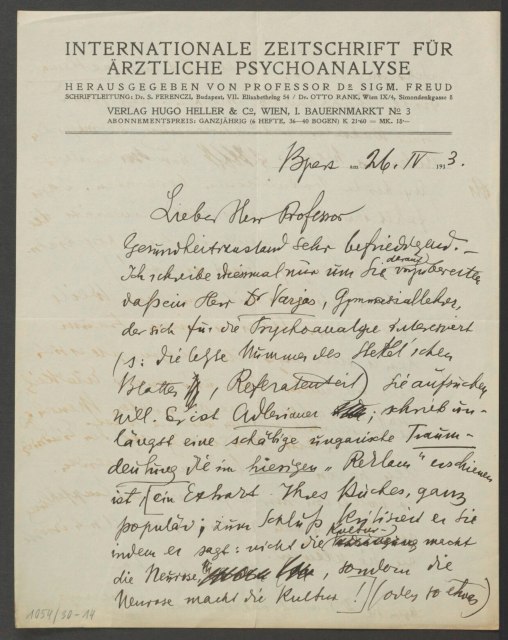 INTERNATIONALE ZEITSCHRIFT FÜR
ÄRZTLICHE PSYCHOANALYSE
HERAUSGEGEBEN VON PROFESSOR Dr SIGM. FREUD
SCHRIFTLEITUNG: Dr. S. FERENCZI, Budapest, VII. Elisabethring 54 / Dr. OTTO RANK, Wien IX/4, Simondenkgasse 8
VERLAG HUGO HELLER & Co, WIEN, I. BAUERNMARKT No 3
ABONNEMENTSPREIS: GANZJÄHRIG (6 HEFTE, 36—40 BOGEN) K 21·60 = MK. 18·—
Bpest am 26. IV 1913.
Lieber Herr Professor
Gesundheitszustand sehr befriedigend. –
Ich schreibe diesmal nur um Sie darauf vorzubereiten
daß ein Herr Dr Varjas, Gymnasiallehrer,
der sich für die Psychoanalyse interessiert
(s: die letzte Nummer des Stekel'schen
Blattes, Referatenteil) Sie aufsuchen
will. Er ist Adlerianer; schrieb un-
längst eine schäbige ungarische Traum-
deutung die im hiesigen „Reklam" erschienen
ist, [ein Extrakt Ihres Buches, ganz
populär; zum Schluß kritisiert er Sie
indem er sagt: nicht die Kultur macht
die Neurose, sondern die
Neurose macht die Kultur!] (oder so etwas)
1054/30-14